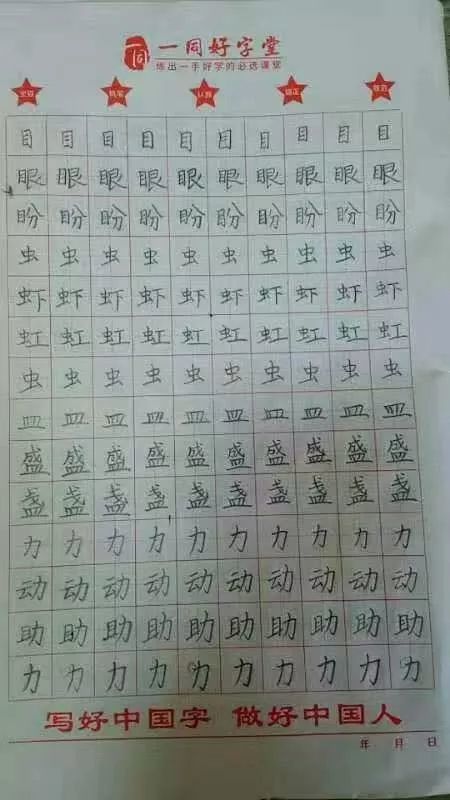 一同 一同好字堂
练出一手好字的必选课堂
目 目 目 目 目 目 目 目 目 目
眼 眼 眼 眼 眼 眼 眼 眼 眼 眼
盼 盼 盼 盼 盼 盼 盼 盼 盼 盼
虫 虫 虫 虫 虫 虫 虫 虫 虫 虫
虾 虾 虾 虾 虾 虾 虾 虾 虾 虾
虹 虹 虹 虹 虹 虹 虹 虹 虹 虹
虫 虫 虫 虫 虫 虫 虫 虫 虫 虫
皿 皿 皿 皿 皿 皿 皿 皿 皿 皿
盛 盛 盛 盛 盛 盛 盛 盛 盛 盛
盏 盏 盏 盏 盏 盏 盏 盏 盏 盏
力 力 力 力 力 力 力 力 力 力
动 动 动 动 动 动 动 动 动 动
助 助 助 助 助 助 助 助 助 助
力 力 力 力 力 力 力 力 力 力
写好中国字 做好中国人
年 月 日